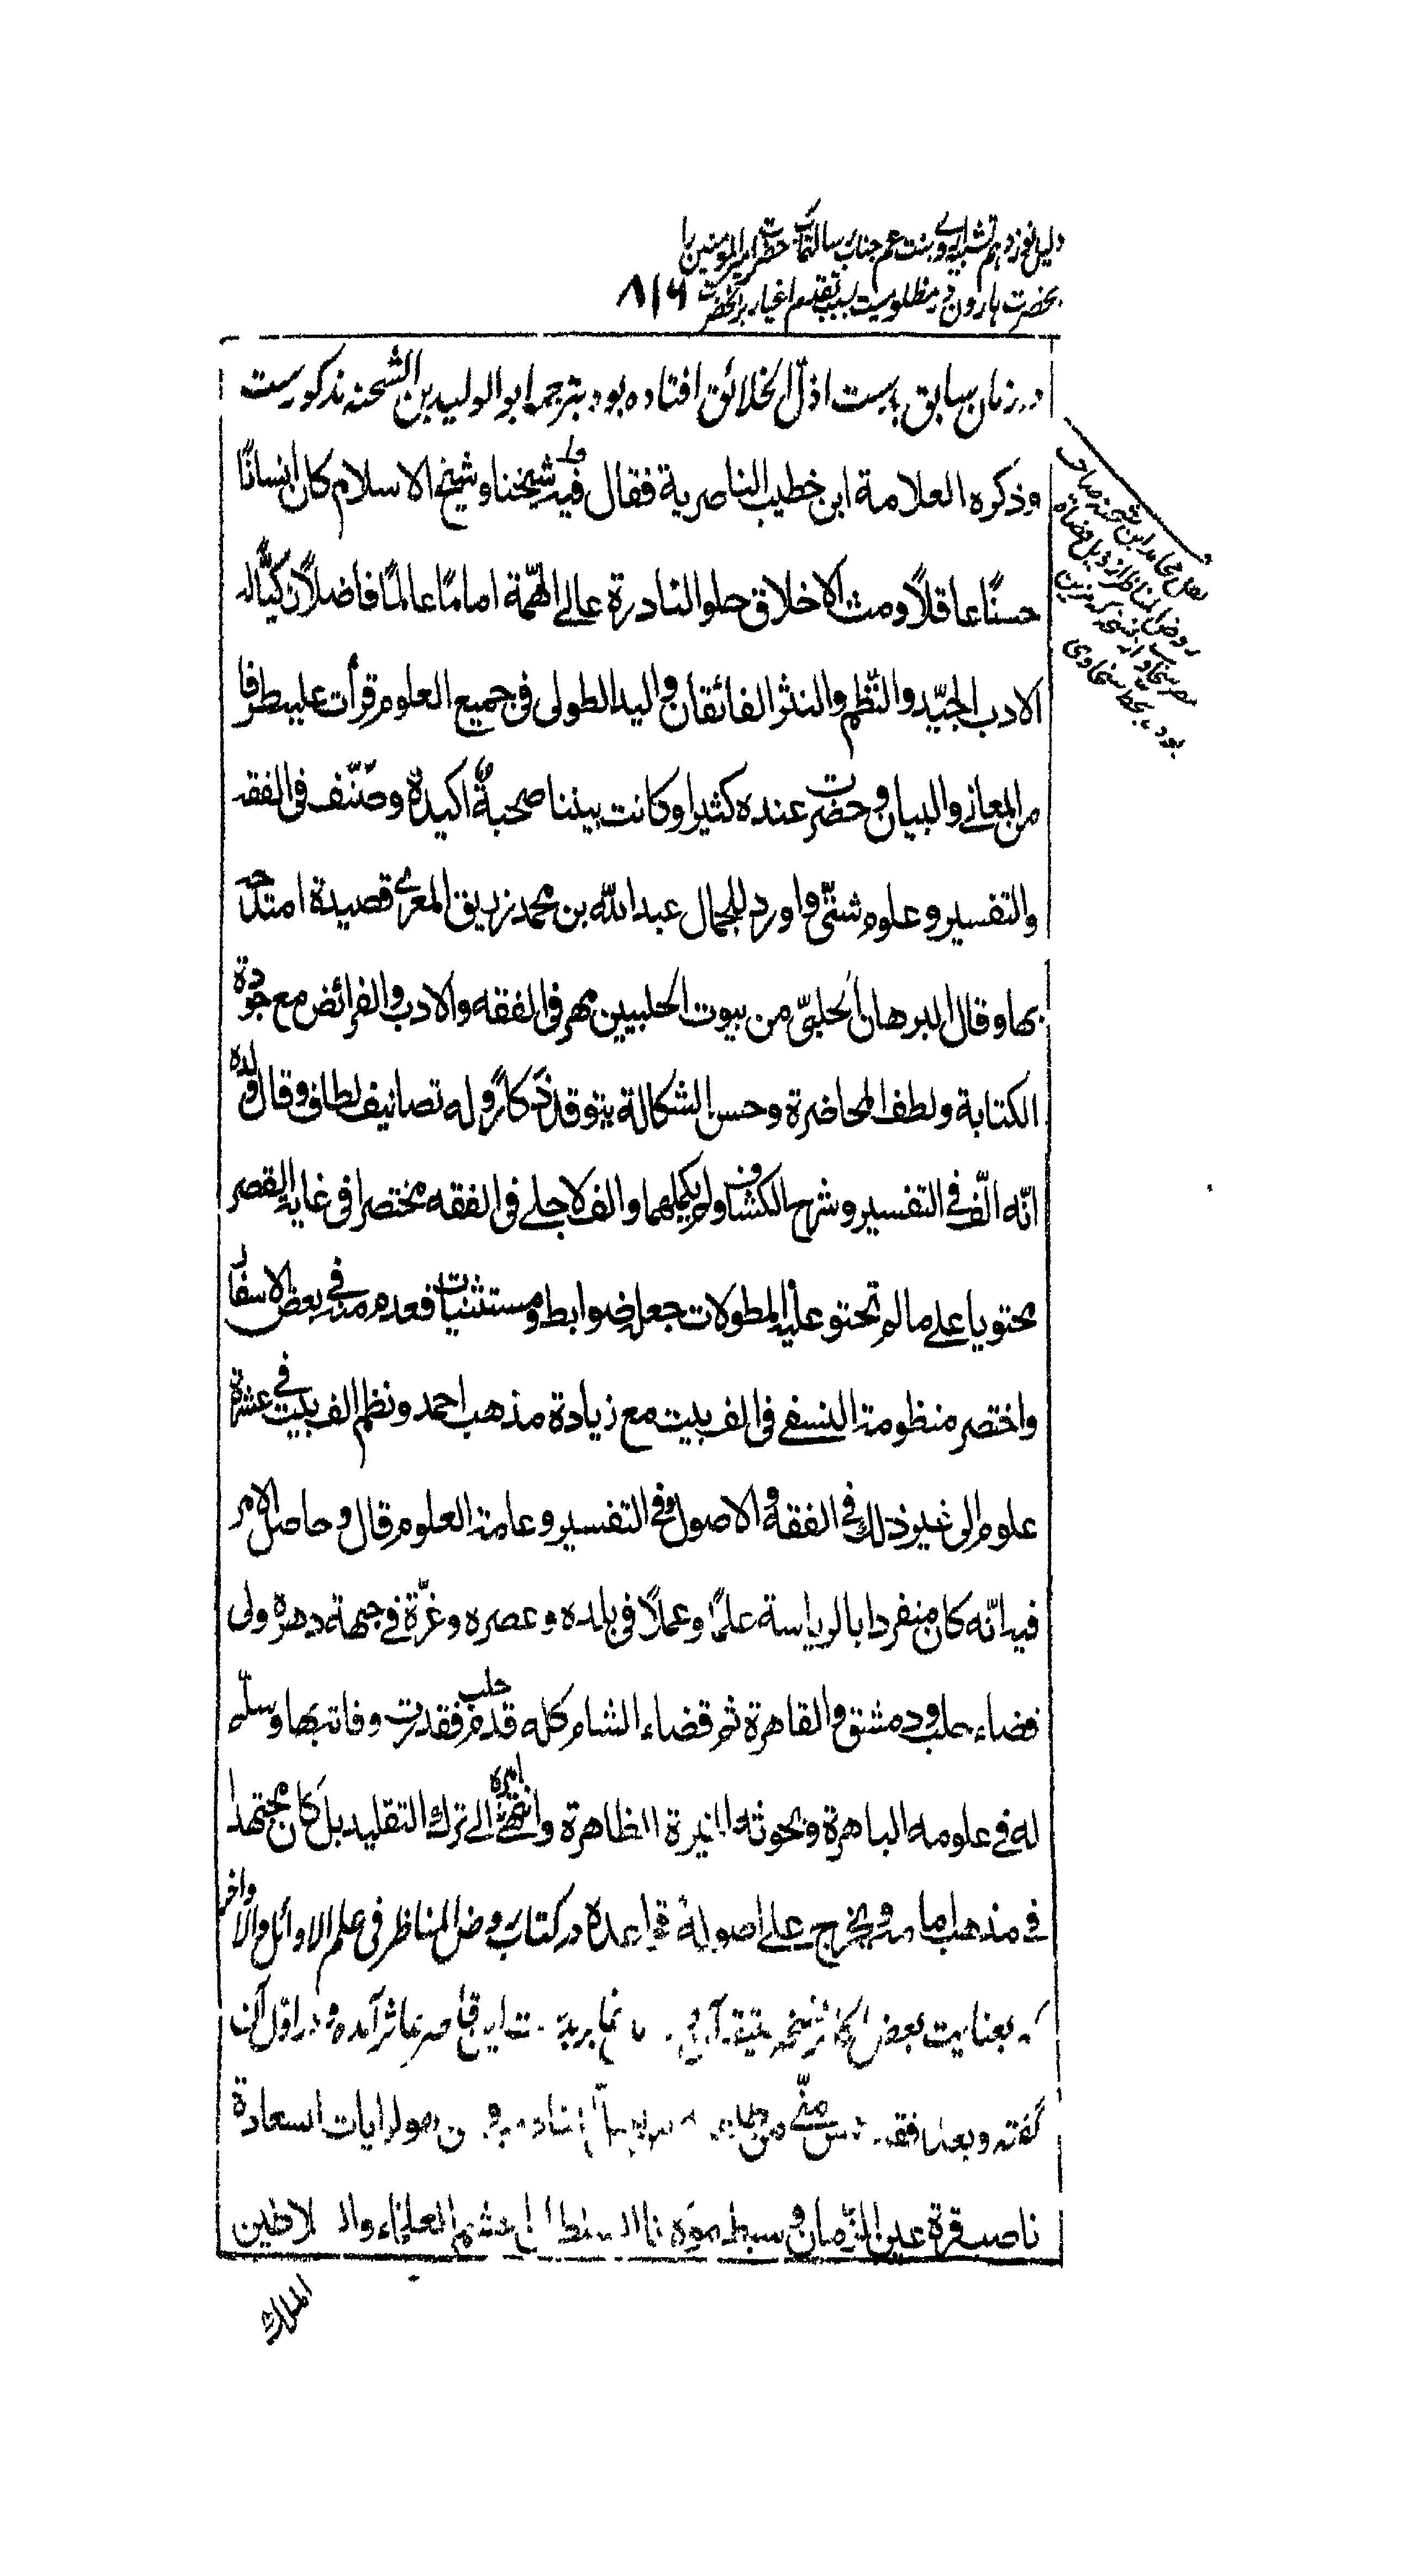 دلیل نوزدهم تشبیه بنت عم جناب رسالتمآب حضرت امیر المومنین با
بحضرت هارون در مظلومیت بسبب تقدم اغیار بر آنحضرت ۸۱۶
در زمان سابق بدست اذلّ الخلائق افتاده بود بترجمه ابو الولید بن الشحنه مذکورست
وذكره العلامة ابن خطیب الناصریة فقال فیه شیخنا وشیخ الاسلام كان انسانًا
حسنًا عاقلًا ومث الاخلاق حلو النادرة عالی الهمّة امامًا عالمًا فاضلًا ذكیًّا له
الادب الجیّد والنّظم والنثر الفائقان والید الطولی فی جمیع العلوم قرأت علیه طرفا
من المعانی والبیان وحضرت عنده كثیرا وكانت بیننا صحبةٌ اكیدة وصنّف فی الفقه
والتفسیر وعلوم شتّی واورد للجمال عبد الله بن محمد زریق المعری قصیدة امتدحه
بها وقال البرهان الحلبیّ من بیوت الحلبیین مهر فی الفقه والادب والفرائض مع جودة
الكتابة ولطف المحاضرة وحسن الشكالة یتوقد ذكاءً وله تصانیف لطاف وقال ولده
انّه الّف فی التفسیر وشرح الكشاف ولم یكملهما والف لاجلی فی الفقه مختصرا فی غایة القصر
محتویا علی ما لم تحتو علیه المطولات جعله ضوابط ومستثنیات فعدم منه فی بعض الاسفار
واختصر منظومة النسفی فی الف بیت مع زیادة مذهب احمد ونظم الف بیت فی عشرة
علوم الی غیر ذلك فی الفقه والاصول وفی التفسیر وعامة العلوم قال وحاصل الامر
فیه انّه كان منفردا بالریاسة علمًا وعملًا فی بلده وعصره وغرّة فی جبهة دهره ولی
قضاء حلب ودمشق والقاهرة ثم قضاء الشام كله قدم حلب فقدرت وفاته بها وسلّم
له فی علومه الباهرة وبحوثه النیرة الظاهرة وانتهی امره الی ترك التقلید بل كان مجتهدا
فی مذهب امامه ویخرج علی اصوله وقواعده در كتاب روض المناظر فی علم الاوائل والاواخر
كه بعنایت بعض آمده ودر اوّل آن
گفته وبعد فقد ایات السعادة
ناصب قرة عین الزمان وسبط العلماء والسلاطین
الملك
نقل محامد ابن شحنه صاحب
روض المناظر از ذیل قضاة
مصر سخاوی از نسخه كه مزین
بود بخط سخاوی